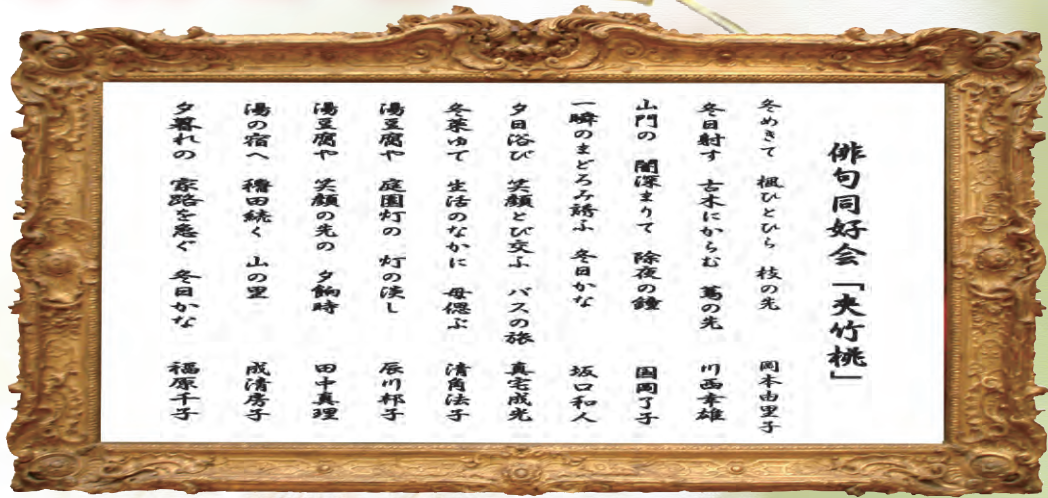 俳句同好会「夾竹桃」
冬めきて 楓ひとひら 枝の先 岡本由里子
冬日射す 古木にからむ 蔦の先 川西幸雄
山門の 闇深まりて 除夜の鐘 国岡了子
一瞬のまどろみ誘ふ 冬日かな 坂口和人
夕日浴び 笑顔とび交ふ バスの旅 真宅成光
冬菜ゆで 生活のなかに 母偲ぶ 清角法子
湯豆腐や 庭園灯の 灯の淡し 辰川邦子
湯豆腐や 笑顔の先の 夕餉時 田中真理
湯の宿へ 穭田続く 山の里 成清房子
夕暮れの 家路を急ぐ 冬日かな 福原千子